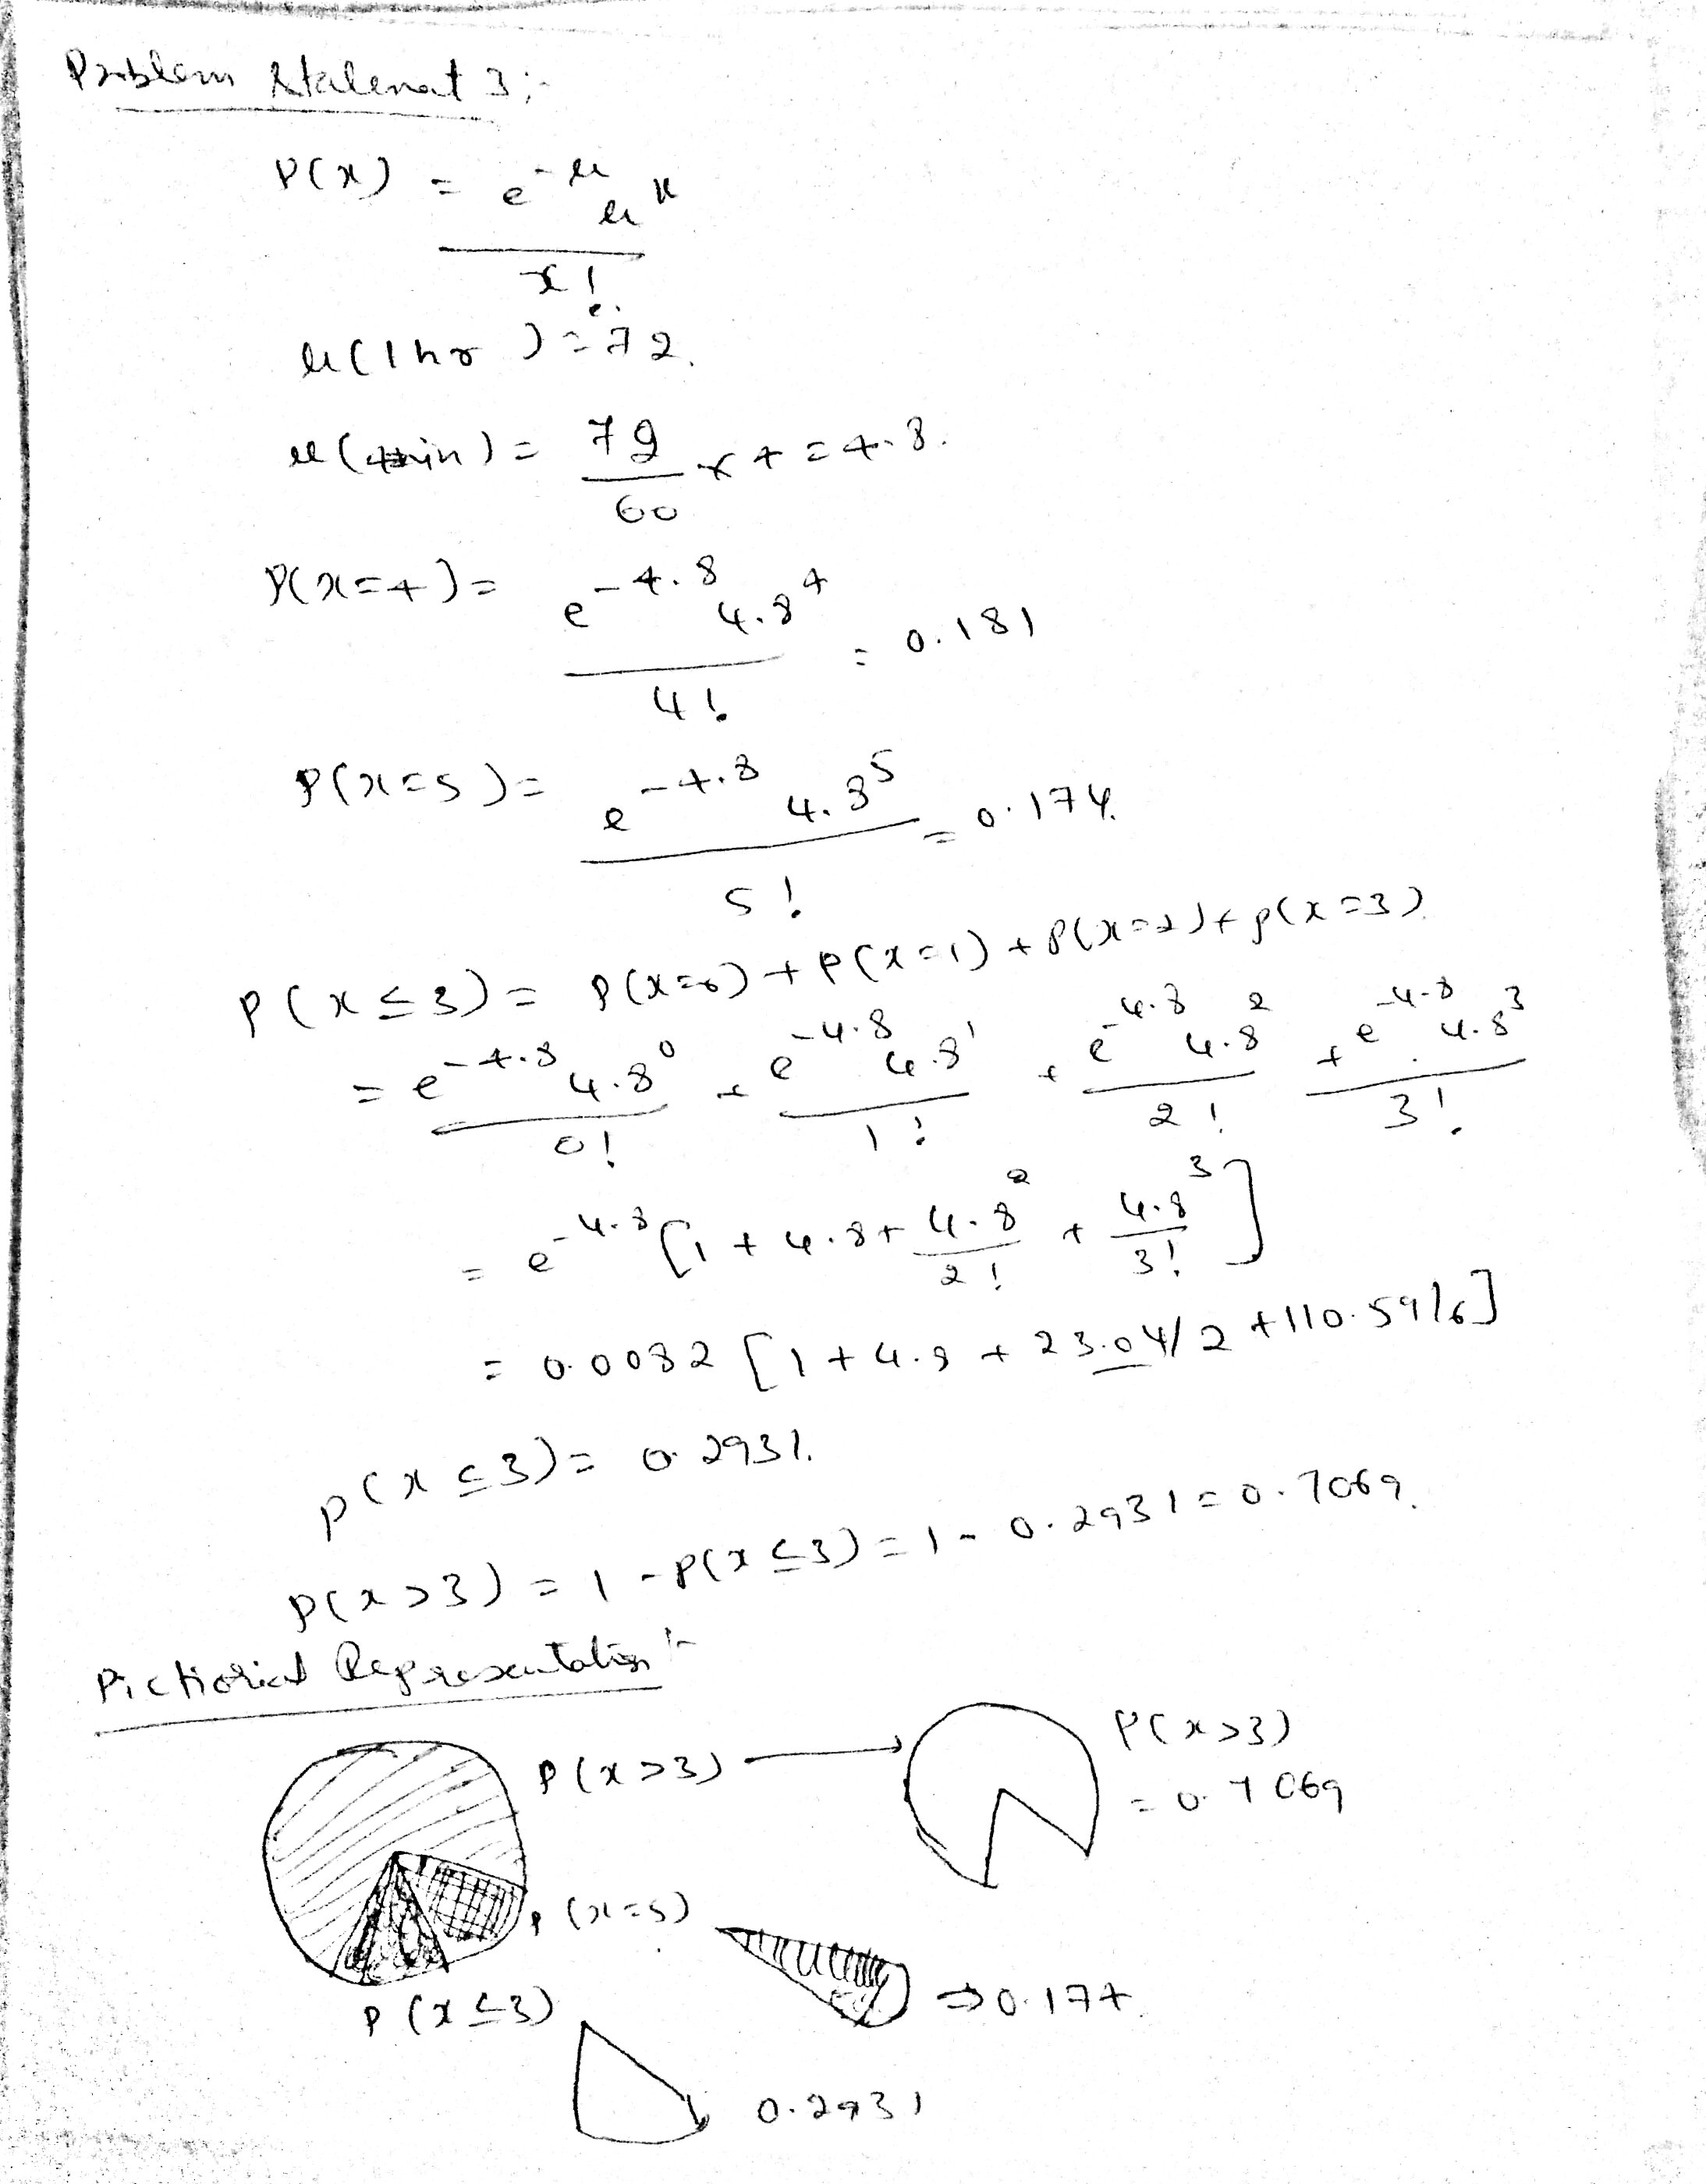 Problem Statement 3:-
P(x) = e^-μ μ^x
x!
μ(1hr) = 72.
μ(4min) = 72/60 × 4 = 4.8.
P(x=4) = e^-4.8 4.8^4 / 4! = 0.181
P(x=5) = e^-4.8 4.8^5 / 5! = 0.174.
P(x≤3) = P(x=0) + P(x=1) + P(x=2) + P(x=3)
= e^-4.8 4.8^0 / 0! + e^-4.8 4.8^1 / 1! + e^-4.8 4.8^2 / 2! + e^-4.8 4.8^3 / 3!
= e^-4.8 [1 + 4.8 + 4.8^2 / 2! + 4.8^3 / 3!]
= 0.0082 [1 + 4.8 + 23.04/2 + 110.59/6]
P(x≤3) = 0.2931.
P(x>3) = 1 - P(x≤3) = 1 - 0.2931 = 0.7069.
Pictiorial Representation:-
P(x>3) → P(x>3)
= 0.7069
P(x=5)
⇒ 0.174.
P(x≤3)
0.2931